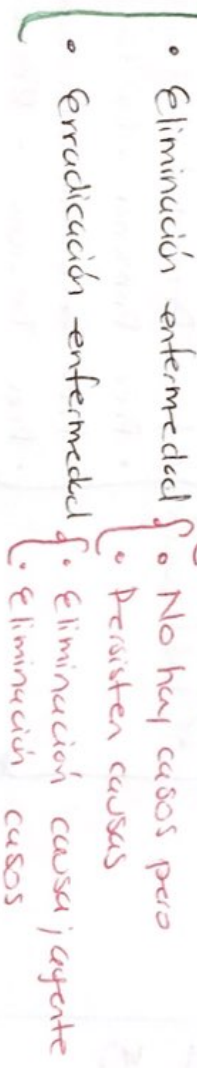 • Eliminación enfermedad
• No hay casos pero
• Persisten causas
• Erradicación enfermedad
• Eliminación causa, agente
• Eliminación casos